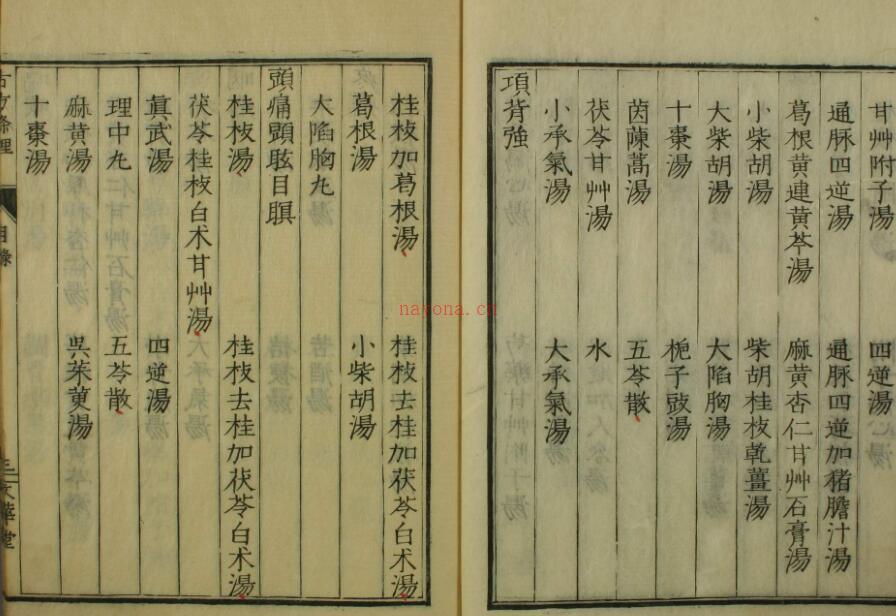 甘艸附子湯 四逆湯
通脉四逆湯 通脉四逆加猪膽汁湯
葛根黄連黄芩湯 麻黄杏仁甘艸石膏湯
小柴胡湯 柴胡桂枝乾薑湯
大柴胡湯 大陷胸湯
十棗湯 梔子豉湯
茵蔯蒿湯 五苓散
茯苓甘艸湯 水
小承氣湯 大承氣湯
項背強
桂枝加葛根湯 桂枝去桂加茯苓白朮湯
葛根湯 小柴胡湯
大陷胸丸
頭痛頭眩目瞑
桂枝湯 桂枝去桂加茯苓白朮湯
茯苓桂枝白朮甘艸湯
眞武湯 四逆湯
理中丸 五苓散
麻黄湯 吳茱萸湯
十棗湯
古方條理 目錄 三 文華堂
nayona.cn